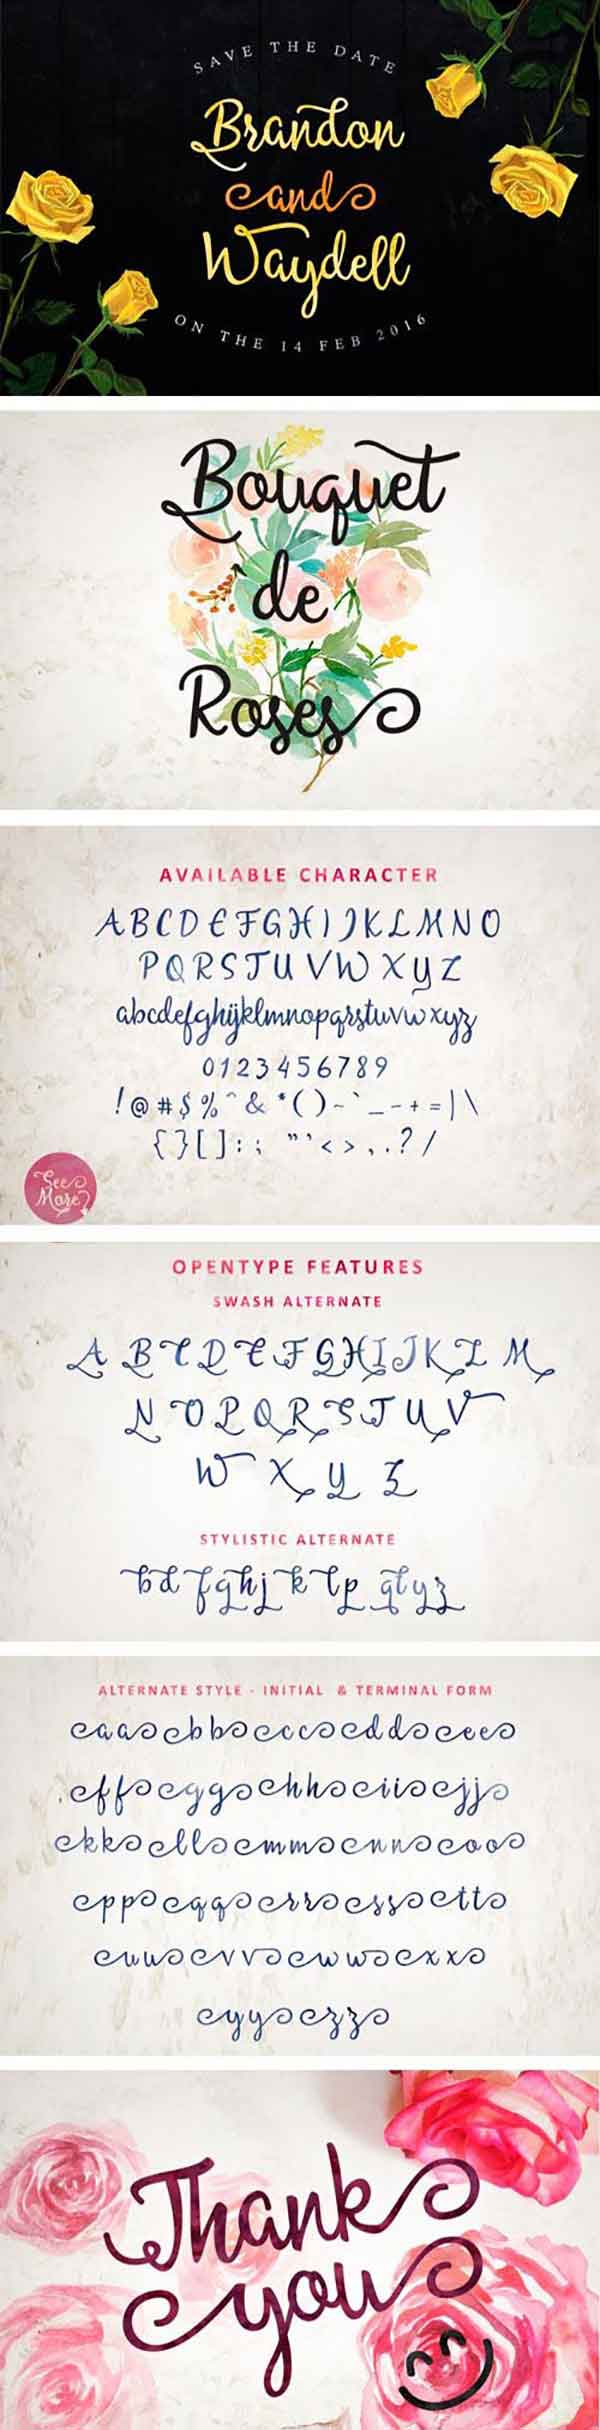 SAVE THE DATE
Brandon
and
Waydell
ON THE 14 FEB 2016
Bouquet
de
Roses
AVAILABLE CHARACTER
ABCDEFGHIJKLMNO
PQRSTUVWXYZ
abcdefghijklmnopqrstuvwxyz
0123456789
!@#$%^&*()~`_-+=|\
{}[]:; "'<>,.?/
See
More?
OPENTYPE FEATURES
SWASH ALTERNATE
A B C D E F G H I J K L M
N O P Q R S T U V
W X Y Z
STYLISTIC ALTERNATE
b d f g h j k l p q t y z
ALTERNATE STYLE - INITIAL & TERMINAL FORM
aaa bbb ccc ddd eee
fff ggg hhh iii jjj
kkk lll mmm nnn ooo
ppp qqq rrr sss ttt
uuu vvv www xxx
yyy zzz
Thank
you